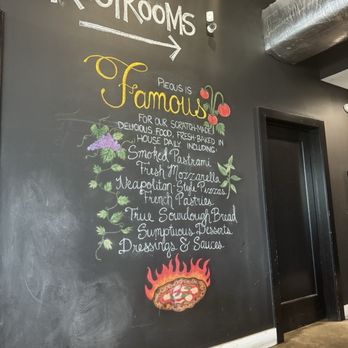 RESTROOMS
PIEOUS IS
Famous
FOR OUR SCRATCH-MADE,
DELICIOUS FOOD, FRESH-BAKED IN
HOUSE DAILY INCLUDING
Smoked Pastrami
Fresh Mozzarella
Neapolitan-Style Pizzas
French Pastries
True Sourdough Bread
Sumptuous Desserts
Dressings & Sauces